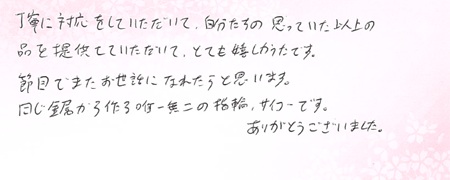 丁寧に対応をしていただいて、自分たちの思っていた以上の
品を提供していただいて、とても嬉しかったです。
節目でまたお世話になれたらと思います。
同じ金属から作る唯一無二の指輪、サイコーです。
ありがとうございました。